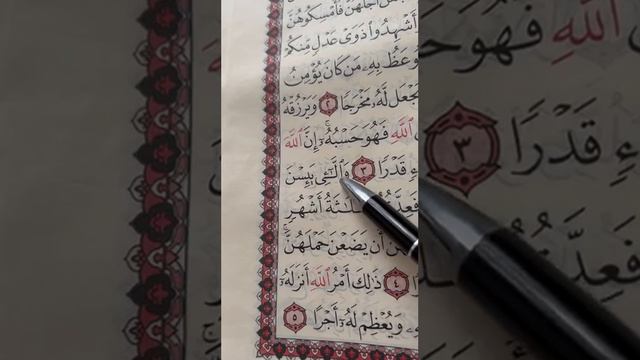 أَجَلَهُنَّ فَأَمْسِكُوهُنَّ
أَشْهِدُوا۟ ذَوَىْ عَدْلٍ مِّنكُمْ
وعَظُ بِهِۦ مَن كَانَ يُؤْمِنُ
جْعَل لَّهُۥ مَخْرَجًا ٢ وَيَرْزُقْهُ
ٱللَّهِ فَهُوَ حَسْبُهُۥٓ إِنَّ ٱللَّهَ
قَدْرًا ٣ وَٱلَّٰٓـِٔى يَئِسْنَ
فَعِدَّ ثَلَٰثَةُ أَشْهُرٍ
أَن يَضَعْنَ حَمْلَهُنَّ
٤ ذَٰلِكَ أَمْرُ ٱللَّهِ أَنزَلَهُۥٓ
وَيُعْظِمْ لَهُۥٓ أَجْرًا ٥